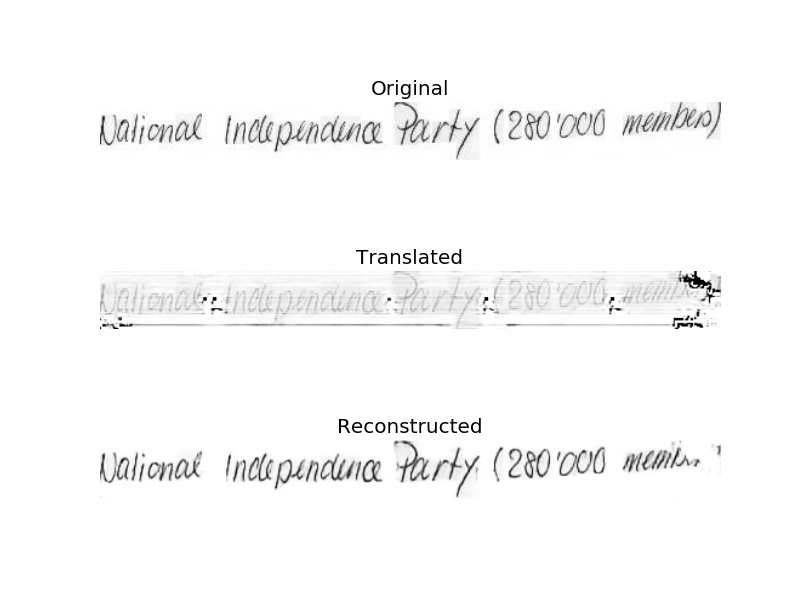 Original
National Independence Party (280'000 members)
Translated
National Independence Party (280'000
Reconstructed
National Independence Party (280'000